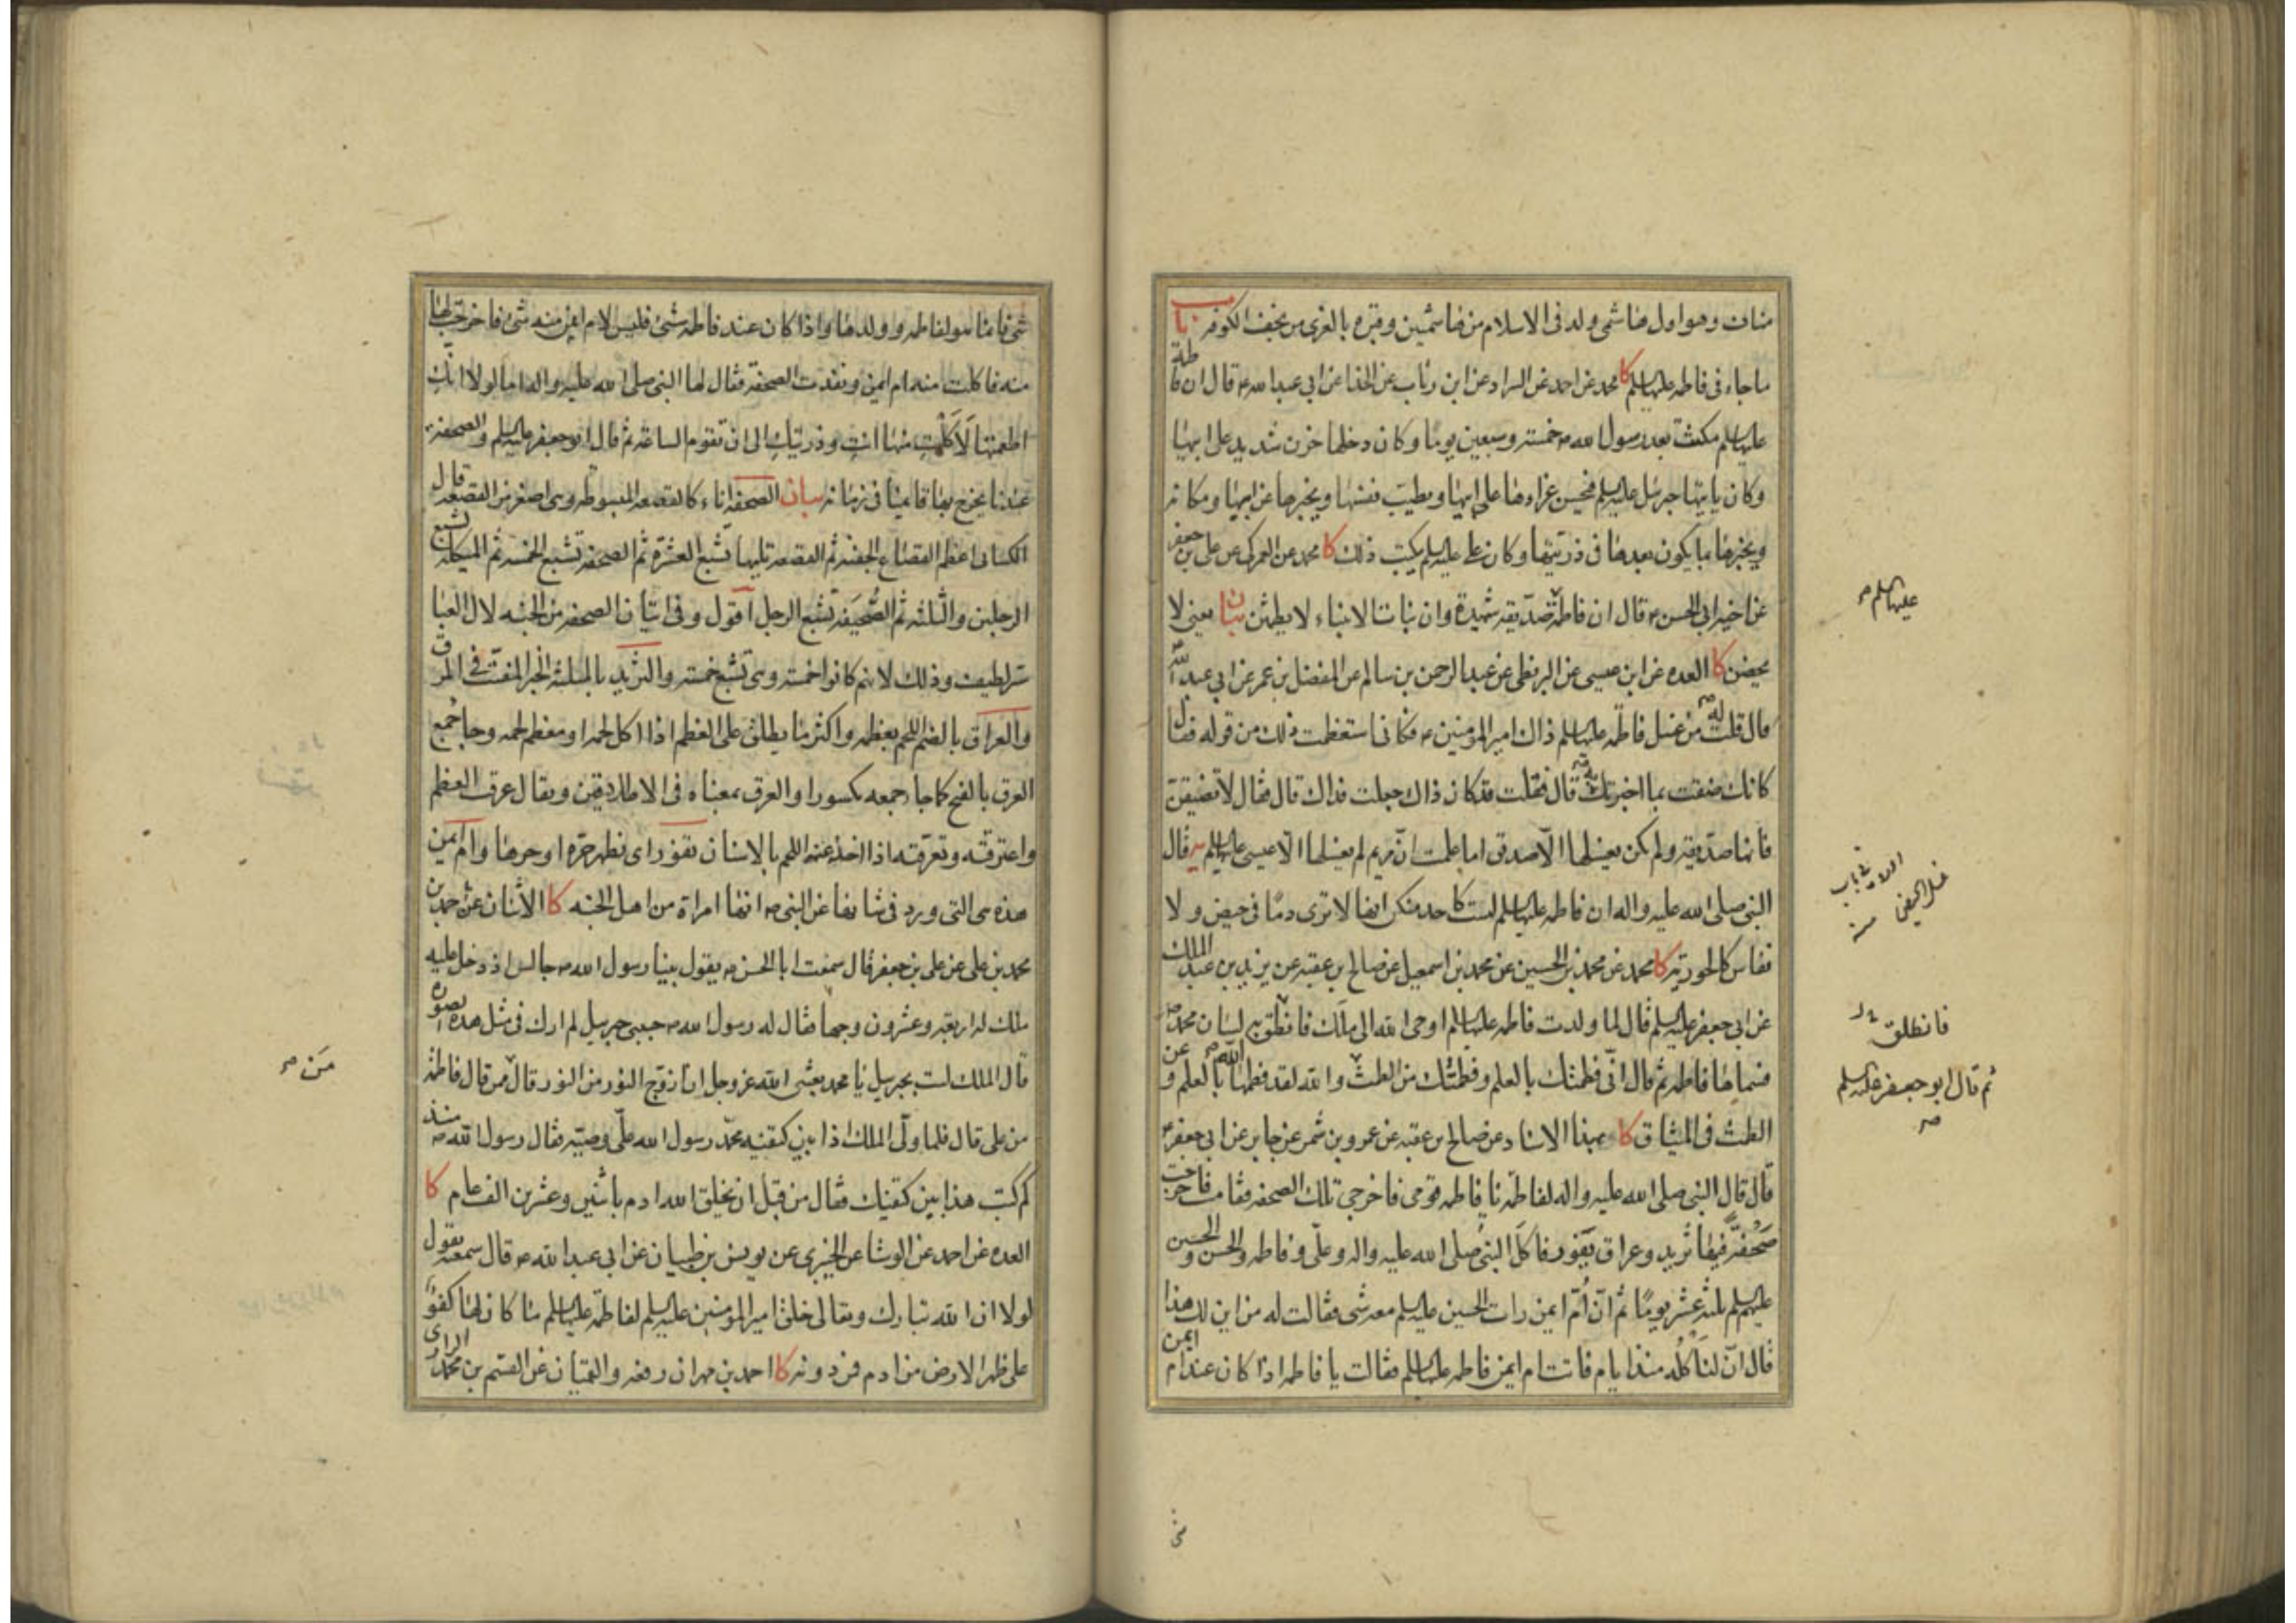 مناف وهو اول هاشمى ولد فى الاسلام من هاشميين وقبره بالغرى من نجف الكوفه باب
ما جاء فى فاطمه عليها السلم كا محمد عن احمد عن السراد عن ابن رئاب عن الحذا عن ابى عبد الله ع قال ان فاطمة
عليها السلم مكثت بعد رسول الله ص خمسة وسبعين يوما وكان دخلها حزن شديد على ابيها
وكان ياتيها جبرئل عليه السلم فيحسن عزاءها على ابيها ويطيب نفسها ويخبرها عن ابيها ومكانه
ويخبرها بما يكون بعدها فى ذريتها وكان على عليه السلم يكتب ذلك كا محمد عن العمركى عن على بن جعفر
عن اخيه ابى الحسن ع قال ان فاطمة صديقه شهيدة وان بنات الانبياء لا يطمثن بيان يعنى لا
يحضن كا العده عن ابن عيسى عن البزنطى عن عبد الرحمن بن سالم عن المفضل بن عمر عن ابى عبد الله
قال قلت له من غسل فاطمه عليها السلم قال ذاك امير المومنين ع فكانى استعظمت ذلك من قوله فقال
كانك ضقت بما اخبرتك به قال فقلت قد كان ذاك جعلت فداك قال فقال لا تضيقن
فانها صديقه ولم يكن يغسلها الا صديق اما علمت ان مريم لم يغسلها الا عيسى عليه السلم يه قال
النبى صلى الله عليه واله ان فاطمه عليها السلم ليست كاحد منكن انها لا ترى دما فى حيض ولا
نفاس كالحوريه كا محمد عن محمد بن الحسين عن محمد بن اسمعيل عن صالح بن عقبه عن يزيد بن عبد الملك
عن ابى جعفر عليه السلم قال لما ولدت فاطمه عليها السلم اوحى الله الى ملك فانطق به لسان محمد ص
فسماها فاطمه ثم قال انى فطمتك بالعلم وفطمتك من الطمث والله لقد فطمها الله بالعلم و عن
الطمث فى الميثاق كا بهذا الاسناد عن صالح بن عقبه عن عمرو بن شمر عن جابر عن ابى جعفر ع
قال قال النبى صلى الله عليه واله لفاطمة يا فاطمه قومى فاخرجى تلك الصحفه فقامت فاخرجت
صحفة فيها ثريد وعراق يفور فاكل النبى صلى الله عليه واله وعلى وفاطمه والحسن والحسين
عليهم السلم ثلثة عشر يوما ثم ان ام ايمن رات الحسين عليه السلم معه شى فقالت له من اين لك هذا
قال انا لناكله منذ ايام فاتت ام ايمن فاطمه عليها السلم فقالت يا فاطمه اذا كان عند ام ايمن
عليهما السلم ص
غسل الحيض
فانطلق
ثم قال ابو جعفر عليه السلم
ص
شى فانما هو لفاطمه وولدها واذا كان عند فاطمه شئ فليس لام ايمن منه شئ فاخرجت لها
منه فاكلت منه ام ايمن ونفدت الصحفة فقال لها النبى صلى الله عليه واله اما لولا انك
اطعمتها لاكلت منها انت وذريتك الى ان تقوم الساعة ثم قال ابو جعفر عليه السلم والصحفة
عندنا يخرج بها قائمنا فى زمانه بيان الصحفه اناء كالقصعه المبسوطه وهى اصغر من القصعه قال
الكسائى اعظم القصاع الجفنه ثم القصعه تليها تشبع العشرة ثم الصحفه تشبع الخمسه ثم الميكله تشبع
الرجلين والثلثه ثم الصحيفه تشبع الرجل اقول وفى اتيان الصحفه من الجنه لال العبا
سر لطيف وذلك لانهم كانوا خمسة وهى تشبع خمسة والثريد بالمثلثه الخبز المفتت فى المرق
والعراق بالضم اللحم بعظمه واكثر ما يطلق على العظم اذا اكل لحمه او معظم لحمه وجا جمع
العرق بالفتح كما جا جمعه مكسورا والعرق بمعناه فى الاطلاقين ويقال عرق العظم
واعترقته وتعرقته اذا اخذ عنه اللحم بالاسنان تفور اى تظهر حره او حرها وام ايمن
هذه هى التى ورد فى شانها عن النبى ص انها امراة من اهل الجنه كا الاثنان عن احمد بن
محمد بن على عن على بن جعفر قال سمعت ابا الحسن ع يقول بينا رسول الله ص جالس اذ دخل عليه
ملك له اربعه وعشرون وجها فقال له رسول الله ص حبيبى جبرئيل لم ارك فى مثل هذه الصوره
قال الملك لست بجبرئيل يا محمد بعثنى الله عز وجل ان ازوج النور من النور قال من قال فاطمة
من على قال فلما ولى الملك اذا بين كتفيه محمد رسول الله على وصيه فقال رسول الله ص منذ
كم كتب هذا بين كتفيك فقال من قبل ان يخلق الله ادم باثنين وعشرين الف عام كا
العده عن احمد عن الوشا عن الخيبرى عن يونس بن ظبيان عن ابى عبد الله ع قال سمعته يقول
لولا ان الله تبارك وتعالى خلق امير المومنين عليه السلم لفاطمة عليها السلم ما كان لها كفو
على ظهر الارض من ادم فمن دونه كا احمد بن مهران رفعه والقميان عن القسم بن محمد الرازى
مَن ص